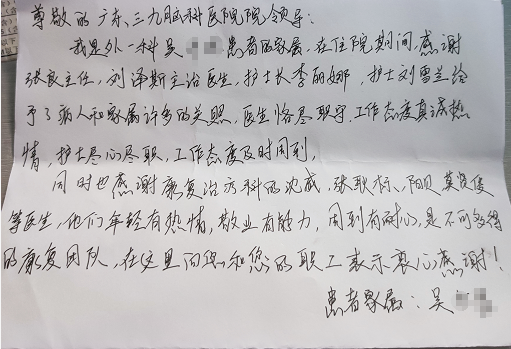 尊敬的广东三九脑科医院院领导：
我是外一科吴 患者的家属，在住院期间，感谢
张良主任，刘泽斯主治医生，护士长李丽娜，护士刘雪兰给
予了病人和家属许多的关照，医生恪尽职守，工作态度真诚热
情，护士尽心尽职，工作态度及时周到，
同时也感谢康复治疗科的沈威、张耿标、阳贝、莫俊
等医生，他们年轻有热情，敬业有能力，周到有耐心，是不可多得
的康复团队，在这里向您和您的职工表示衷心感谢！
患者家属：吴